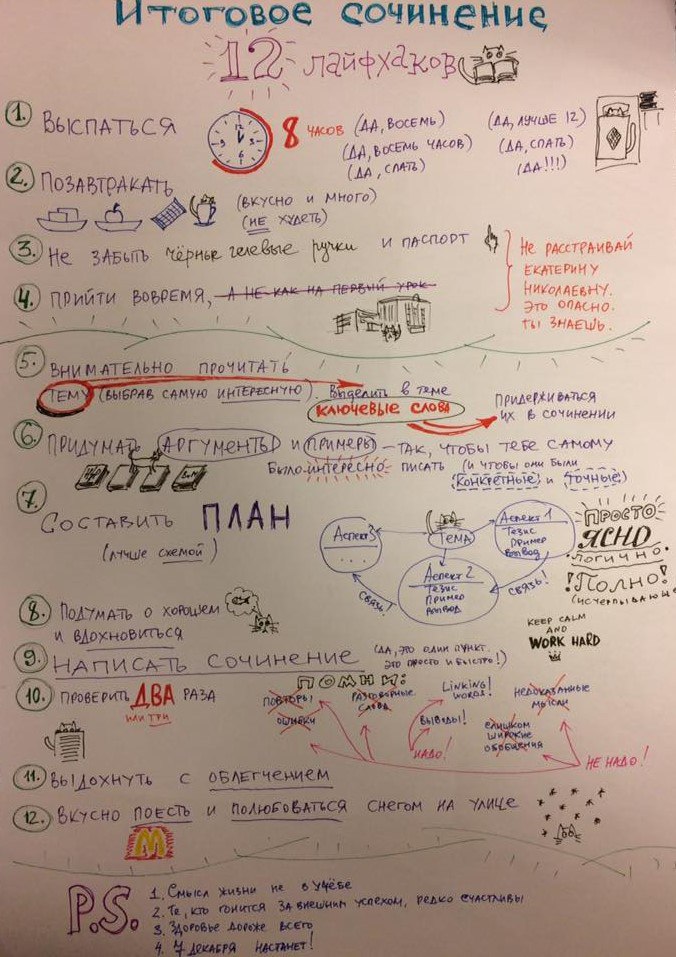 Итоговое сочинение
12 лайфхаков
1. Выспаться
8 часов (да, восемь)
(да, восемь часов)
(да, спать)
(да, лучше 12)
(да, спать)
(да!!!)
2. Позавтракать
(вкусно и много)
(не худеть)
3. Не забыть чёрные гелевые ручки и паспорт
4. Прийти вовремя, а не как на первый урок
Не расстраивай
Екатерину
Николаевну.
Это опасно.
Ты знаешь.
5. Внимательно прочитать
тему (выбрав самую интересную). Выделить в теме
ключевые слова
придерживаться
их в сочинении
6. Придумать аргументы и примеры – так, чтобы тебе самому
было интересно писать (и чтобы они были
конкретные и точные)
7. Составить план
(лучше схемой)
Аспект 3
...
Тема
Аспект 1
Тезис
Пример
Вывод
Аспект 2
Тезис
Пример
Вывод
связь!
связь!
Просто
ясно
логично
!Полно!
(исчерпывающе
8. Подумать о хорошем
и вдохновиться
KEEP CALM
AND
WORK HARD
9. Написать сочинение (да, это один пункт.
Это просто и быстро!)
10. Проверить два раза
или три
Помни:
повторы
ошибки
разговорные
слова
Linking
words!
выводы!
недоказанные
мысли
слишком
широкие
обобщения
надо!
не надо!
11. Выдохнуть с облегчением
12. Вкусно поесть и полюбоваться снегом на улице
M
P.S.
1. Смысл жизни не в учёбе
2. Те, кто гонится за внешним успехом, редко счастливы
3. Здоровье дороже всего
4. 7 декабря настанет!